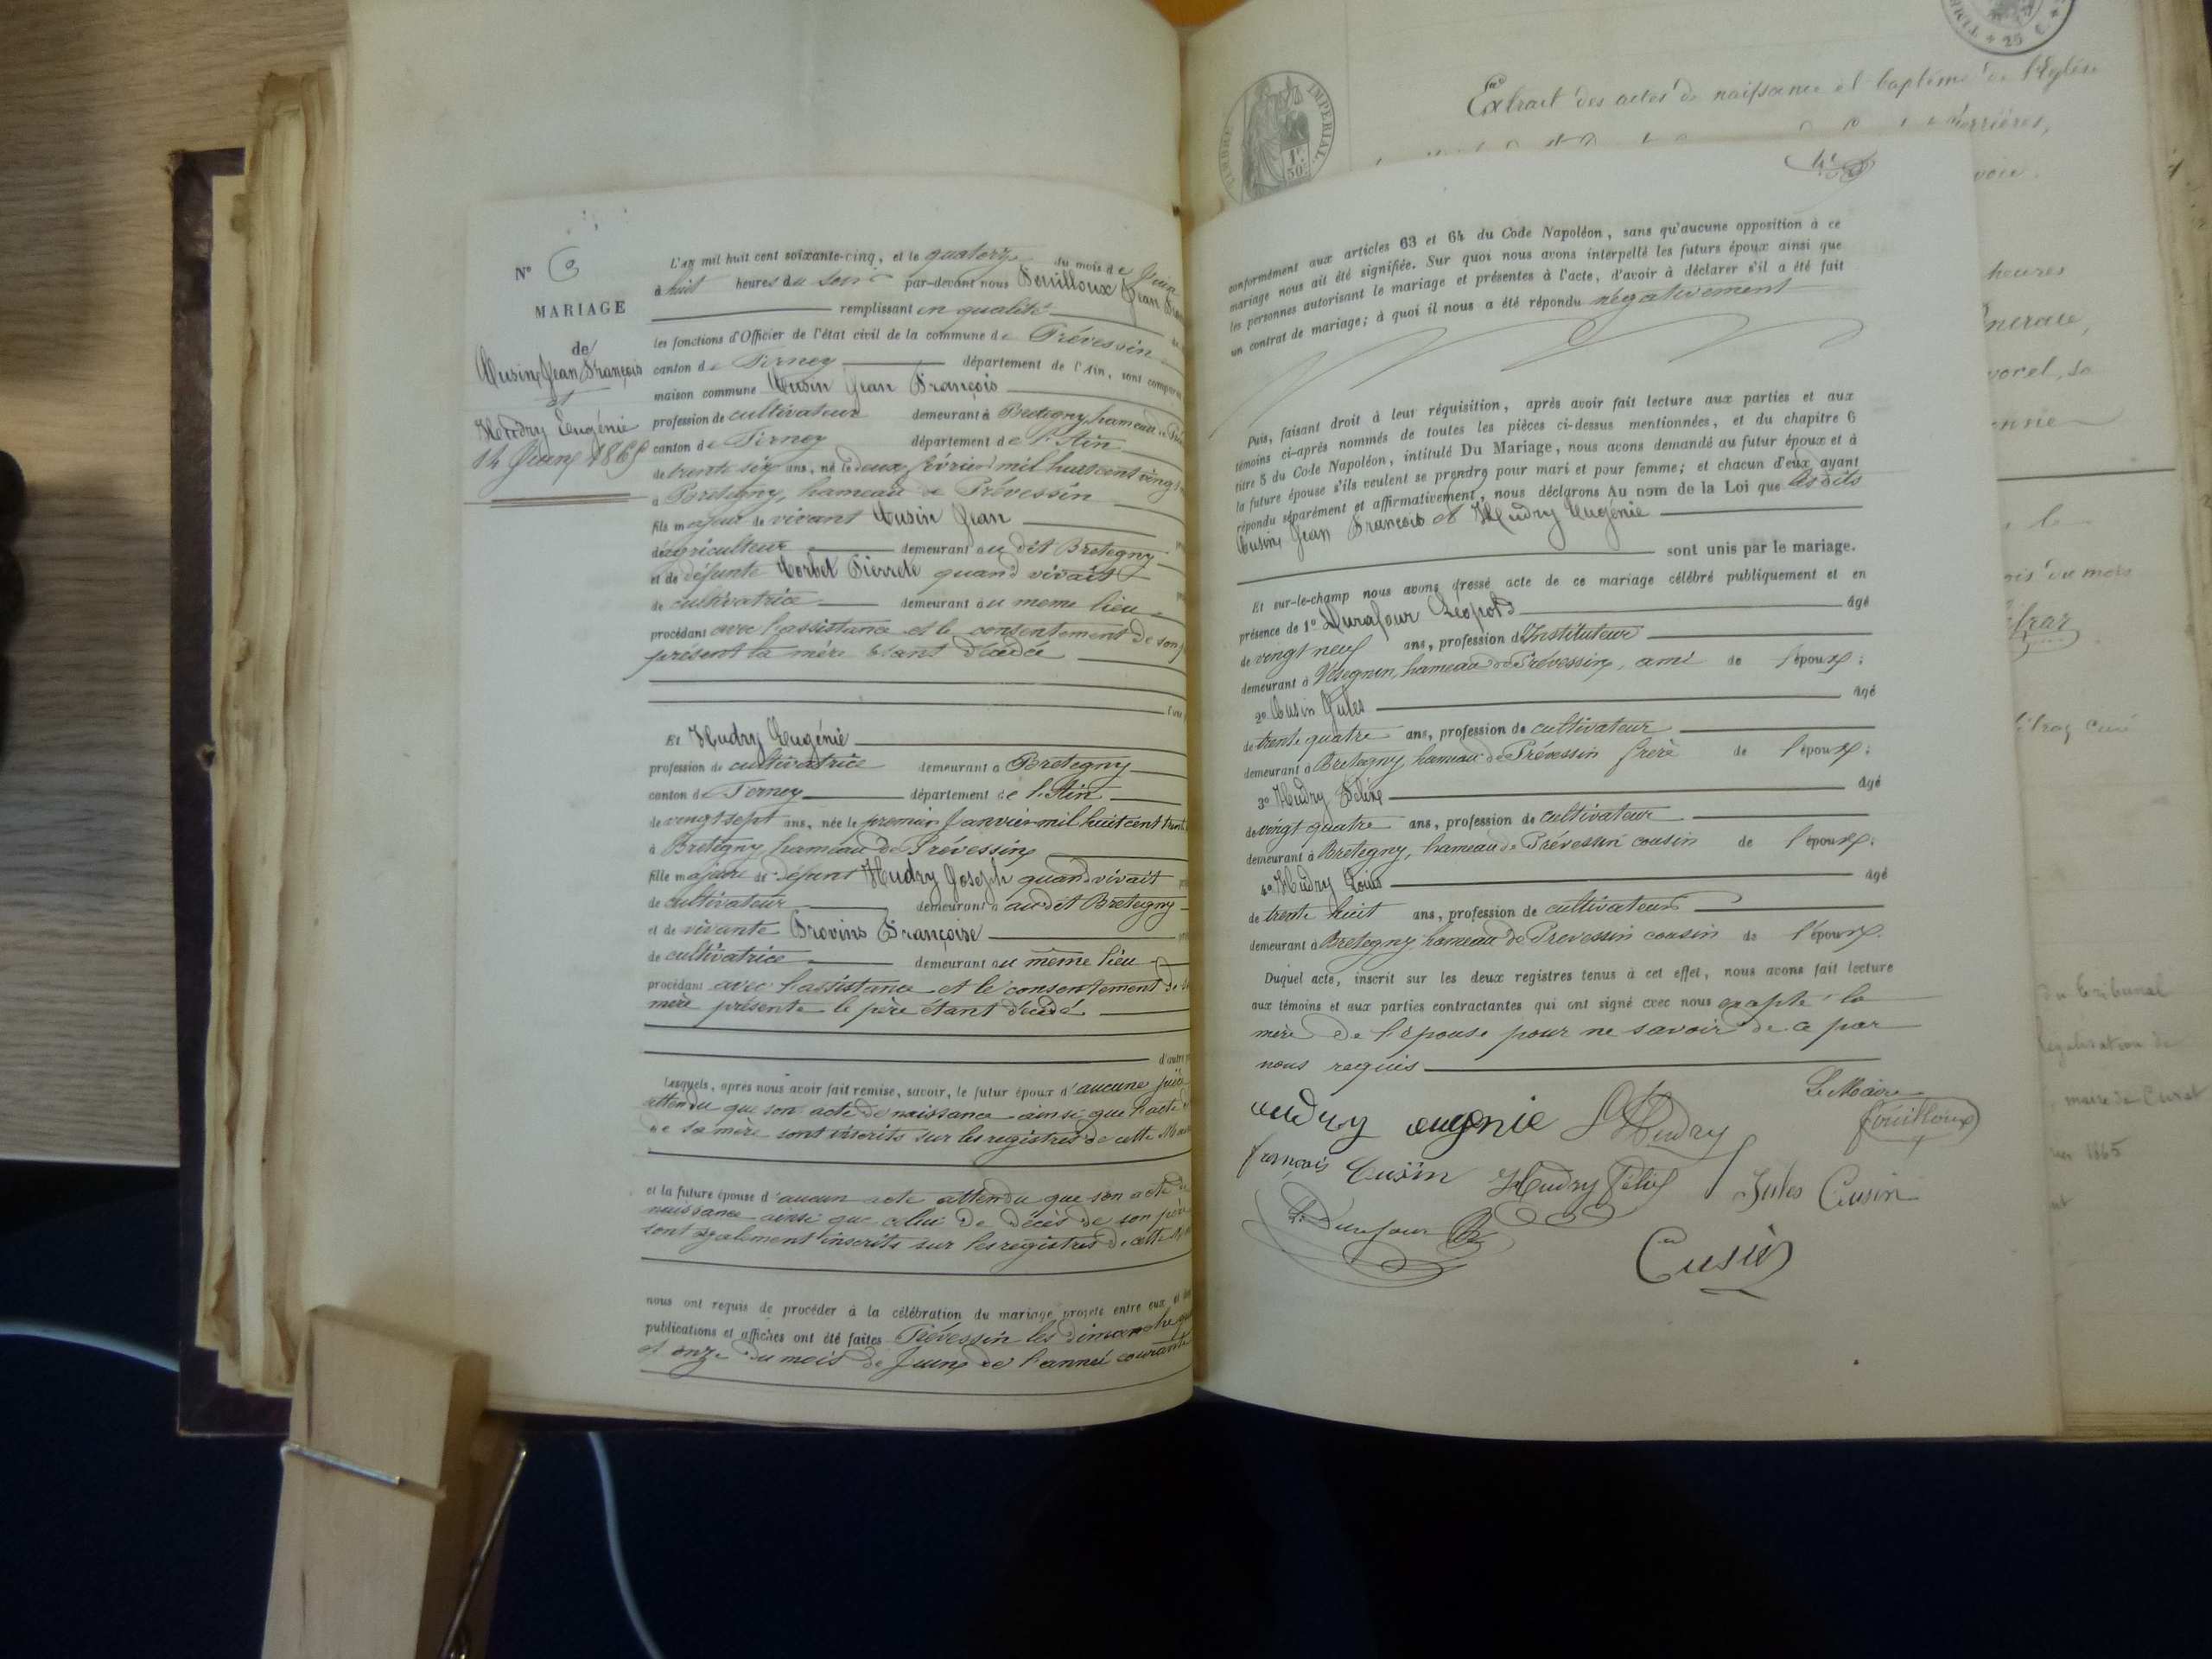 N° 3
MARIAGE
de
Cusin, Jean François
et
Hudry Eugénie
14 Juin 1865
L'an mil huit cent soixante-cinq, et le quatorze du mois de Juin
à huit heures du soir par-devant nous Fouilloux Jean
remplissant en qualité
les fonctions d'Officier de l'état civil de la commune de Prévessin
canton de Ferney département de l'Ain, sont comparus
maison commune Cusin Jean François
profession de cultivateur demeurant à Bretegny, hameau de
canton de Ferney département de l'Ain
de trente six ans, né le deux février mil huit cent vingt
à Bretegny, hameau de Prévessin
fils majeur de vivant Cusin Jean
d'agriculteur demeurant au dit Bretegny
et de défunte Corbet Pierrete quand vivait
de cultivatrice demeurant au meme lieu
procédant avec l'assistance et le consentement de son
présent la mère étant décédée
Et Hudry Eugénie
profession de cultivatrice demeurant à Bretegny
canton de Ferney département de l'Ain
de vingt sept ans, née le premier Janvier mil huit cent trente
à Bretegny, hameau de Prévessin
fille majeure de défunt Hudry Joseph quand vivait
de cultivateur demeurant à au dit Bretegny
et de vivante Provins Françoise
de cultivatrice demeurant au même lieu
procédant avec l'assistance et le consentement de
mère présente le père étant décédé
d'autre
Lesquels, après nous avoir fait remise, savoir, le futur époux d'aucune pièce
attendu que son acte de naissance ainsi que l'acte
de sa mère sont inscrits sur les registres de cette
et la future épouse d'aucun acte attendu que son acte de
naissance ainsi que celui de décès de son père
sont également inscrits sur les registres de cette
nous ont requis de procéder à la célébration du mariage projeté entre eux, et
publications et affiches ont été faites Prévessin les dimanche
et onze du mois de Juin de l'année courante
conformément aux articles 63 et 64 du Code Napoléon, sans qu'aucune opposition à ce
mariage nous ait été signifiée. Sur quoi nous avons interpellé les futurs époux ainsi que
les personnes autorisant le mariage et présentes à l'acte, d'avoir à déclarer s'il a été fait
un contrat de mariage; à quoi il nous a été répondu négativement
Puis, faisant droit à leur réquisition, après avoir fait lecture aux parties et aux
témoins ci-après nommés de toutes les pièces ci-dessus mentionnées, et du chapitre 6
titre 5 du Code Napoléon, intitulé Du Mariage, nous avons demandé au futur époux et à
la future épouse s'ils veulent se prendre pour mari et pour femme; et chacun d'eux ayant
répondu séparément et affirmativement, nous déclarons Au nom de la Loi que lesdits
Cusin, Jean François et Hudry Eugénie
sont unis par le mariage.
Et sur-le-champ nous avons dressé acte de ce mariage célébré publiquement et en
présence de 1° Durafour Léopold âgé
de vingt neuf ans, profession d'Instituteur
demeurant à Vesegnin, hameau de Prévessin, ami de l'époux;
2° Cusin Jules âgé
de trente quatre ans, profession de cultivateur
demeurant à Bretegny, hameau de Prévessin frère de l'époux;
3° Hudry Félix âgé
de vingt quatre ans, profession de cultivateur
demeurant à Bretegny, hameau de Prévessin cousin de l'époux;
4° Hudry Louis âgé
de trente huit ans, profession de cultivateur
demeurant à Bretegny, hameau de Prevessin cousin de l'époux.
Duquel acte, inscrit sur les deux registres tenus à cet effet, nous avons fait lecture
aux témoins et aux parties contractantes qui ont signé avec nous excepté la
mère de l'épouse pour ne savoir de ce par
nous requis
Le Maire
udry eugenie L Hudry Fouilloux
françois Cusin Hudry Félix Jules Cusin
L. Durafour
Cusin
TIMBRE IMPERIAL
1F.
50C.
25 C
Extrait des actes de naissance et baptême de l'Eglise
heures